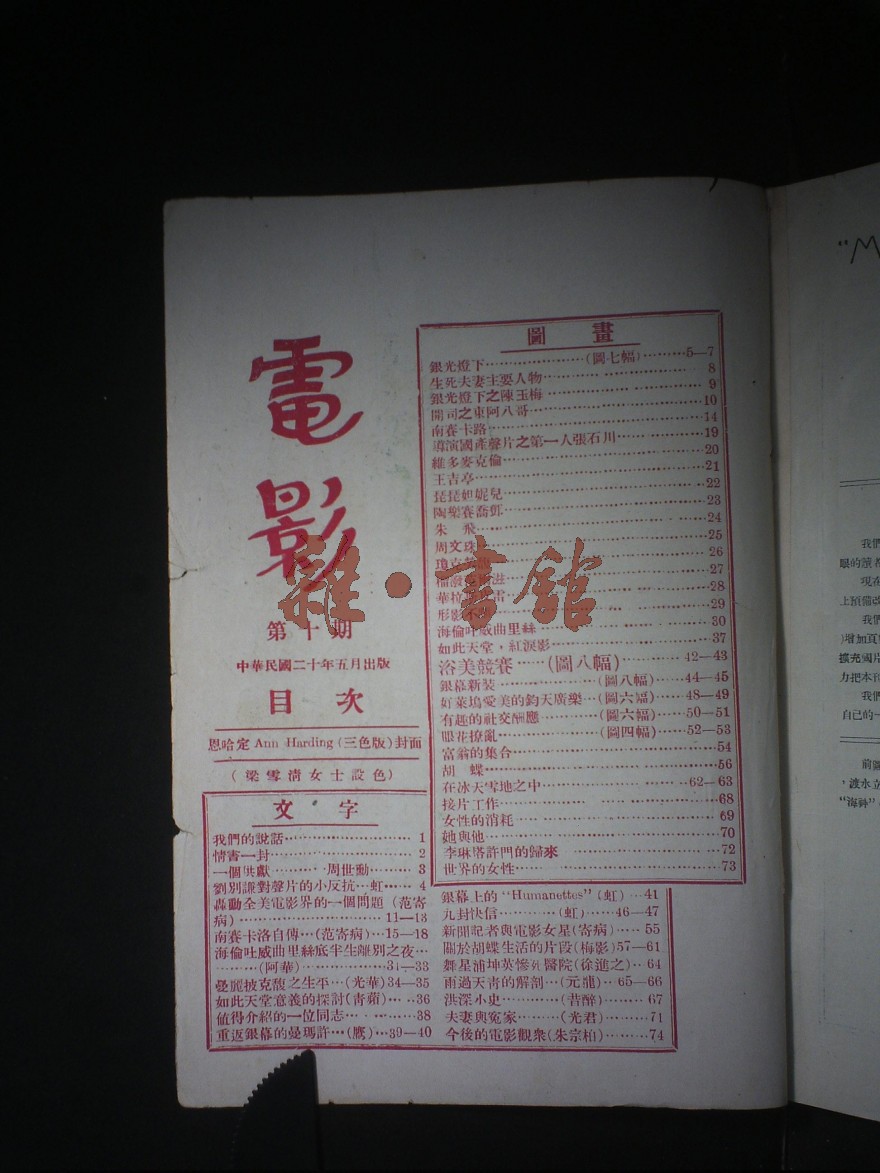 電影
第十期
中華民國二十年五月出版
目次
恩哈定 Ann Harding (三色版) 封面
(梁雪清女士設色)
圖畫
銀光燈下…(圖七幅)…5—7
生死夫妻主要人物…8
銀光燈下之陳玉梅…9
開司之東阿八哥…10
南賽卡路…14
導演國產聲片之第一人張石川…19
維多麥克倫…20
王吉亭…21
琵琵妲妮兒…22
陶樂賽喬鄧…23
朱飛…24
周文珠…25
26
27
28
形影不…29
海倫吐威曲里絲…30
如此天堂,紅淚影…37
浴美競賽…(圖八幅)…42—43
銀幕新裝…(圖八幅)…44—45
好萊塢愛美的鈞天廣樂…(圖六幅)…48—49
有趣的社交酬應…(圖六幅)…50—51
眼花撩亂…(圖四幅)…52—53
富翁的集合…54
胡蝶…56
在冰天雪地之中…62—63
接片工作…68
女性的消耗…69
她與他…70
李琳塔許門的歸來…72
世界的女性…73
文字
我們的說話…1
情書一封…2
一個供獻…周世勳…3
劉別謙對聲片的小反抗…虹…4
轟動全美電影界的一個問題 (范寄
病)…11—13
南賽卡洛自傳…(范寄病)…15—18
海倫吐威曲里絲底半生離別之夜…
…(阿華)…31—33
曼麗披克馥之生平…(光華)34—35
如此天堂意義的探討(青蘋)…36
值得介紹的一位同志…38
重返銀幕的曼瑪許…(鷹)…39—40
銀幕上的 "Humanettes" (虹)…41
九封快信…(虹)…46—47
新聞記者與電影女星(寄病)…55
關於胡蝶生活的片段(梅影)57—61
舞星浦坤英慘死醫院(徐進之)…64
雨過天青的解剖…(元龍)…65—66
洪深小史…(昔醉)…67
夫妻與冤家…(光君)…71
今後的電影觀衆(朱宗柏)…74
雜·書館
"M
我們
眼的讀者
現在
上預備改
我們
增加頁
擴充國片
力把本刊
我們
自己的一
前
,渡永立
"海神"